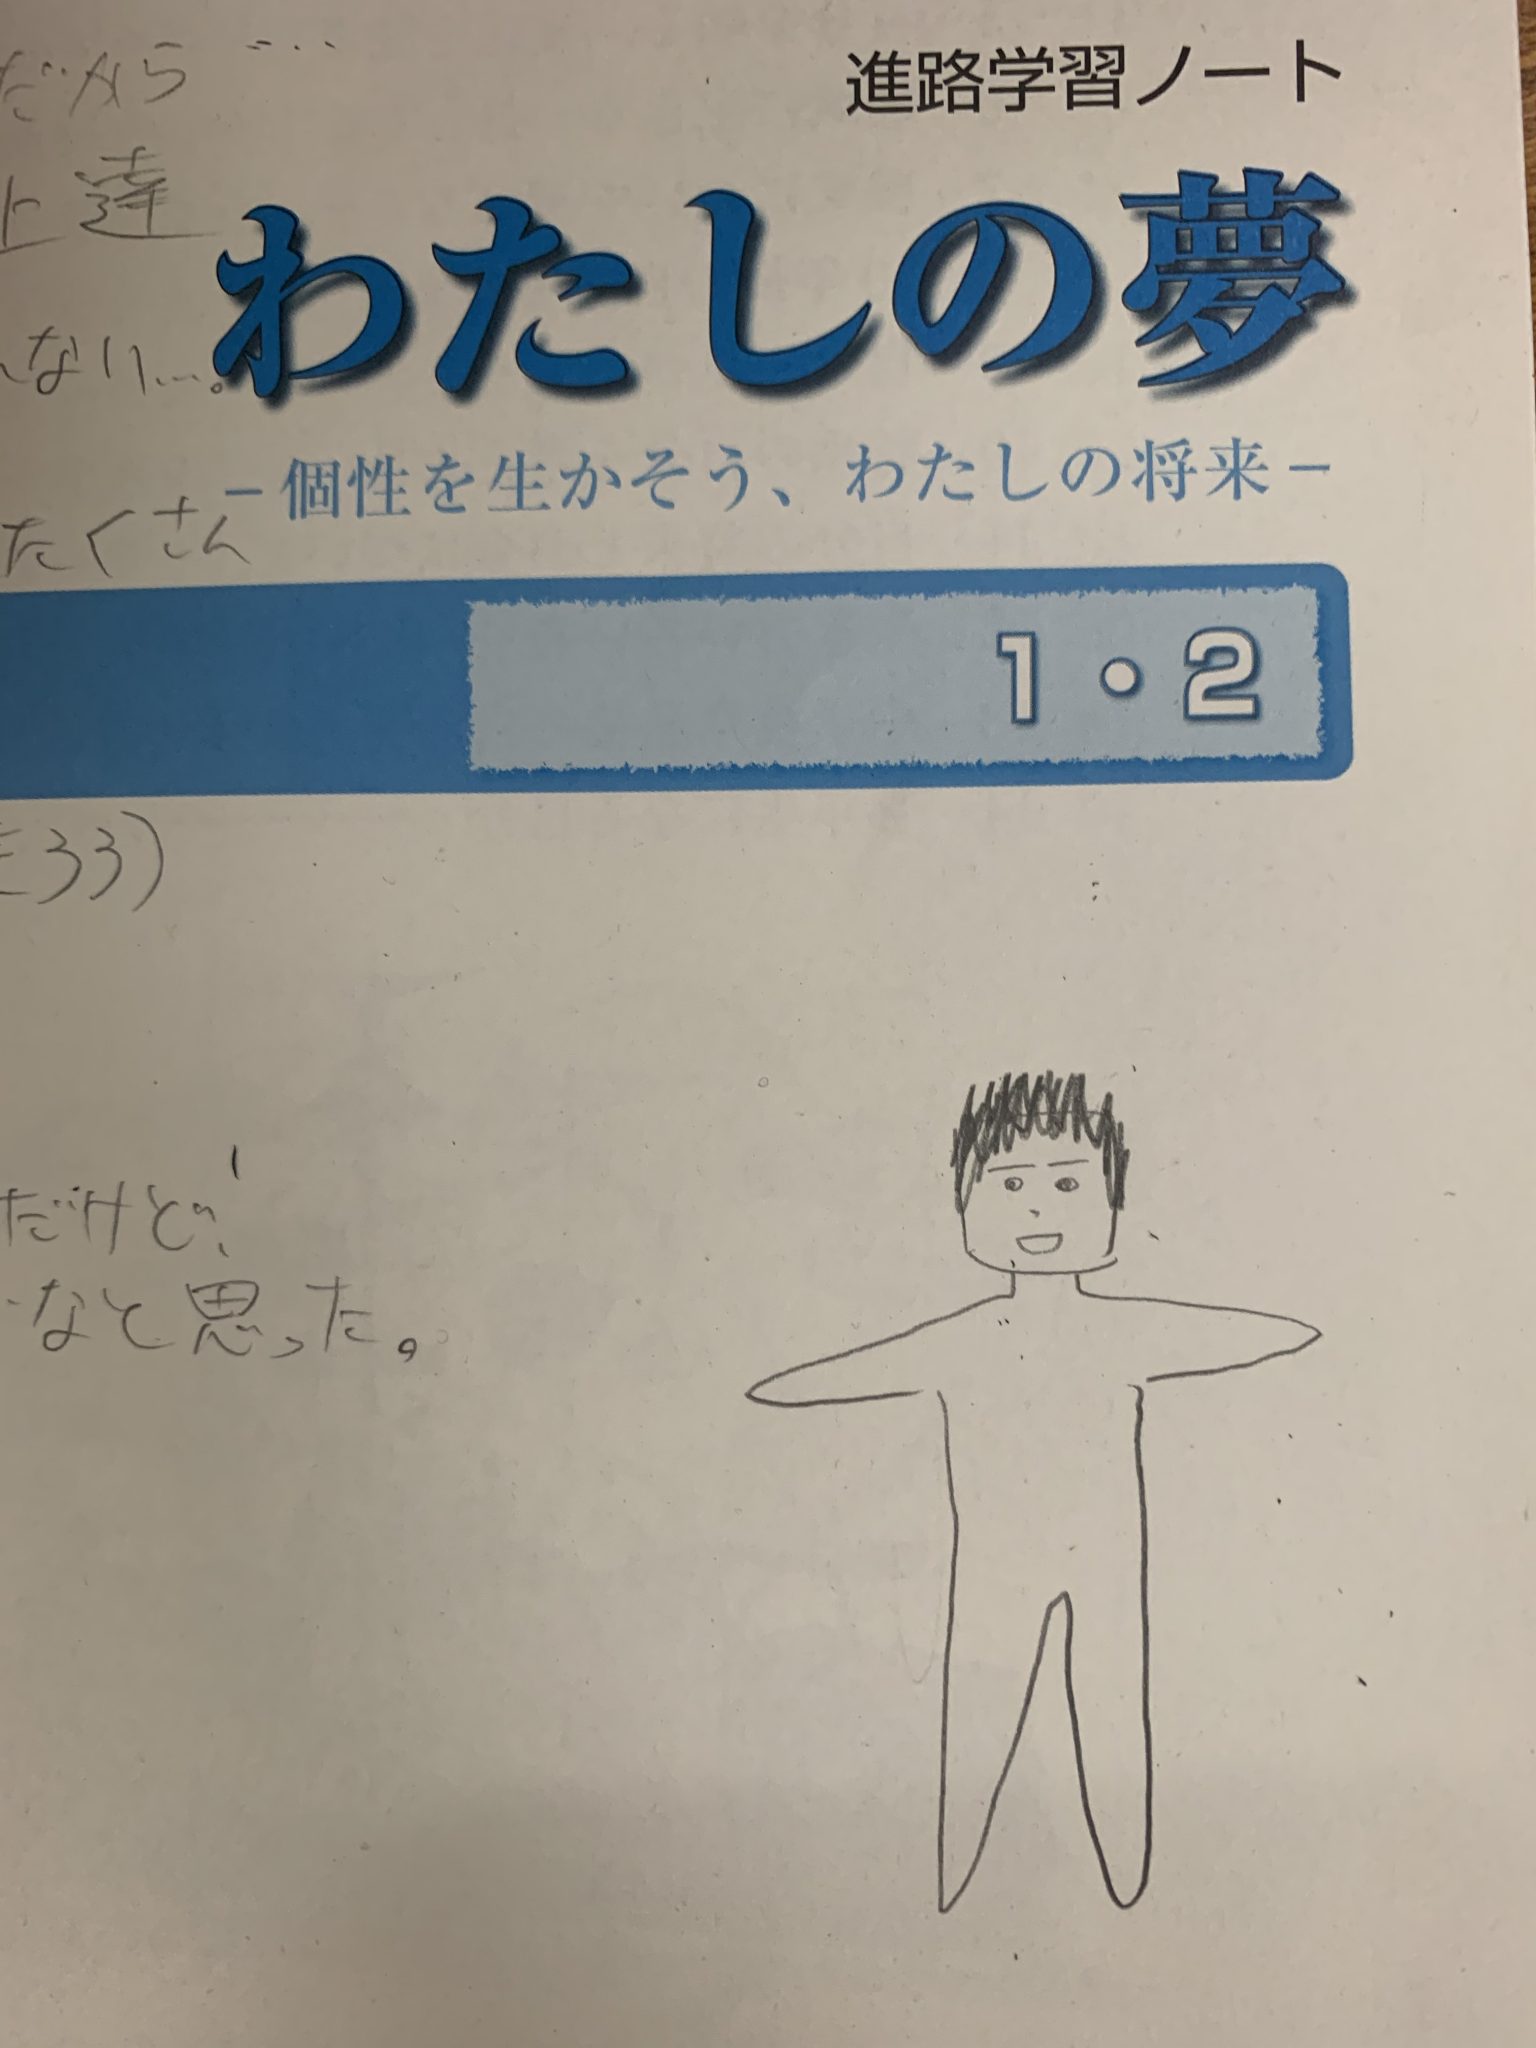 だから…
進路学習ノート
上達
わたしの夢
ない…。
－個性を生かそう、わたしの将来－
たくさん
1・2
33)
だけど、
なと思った。